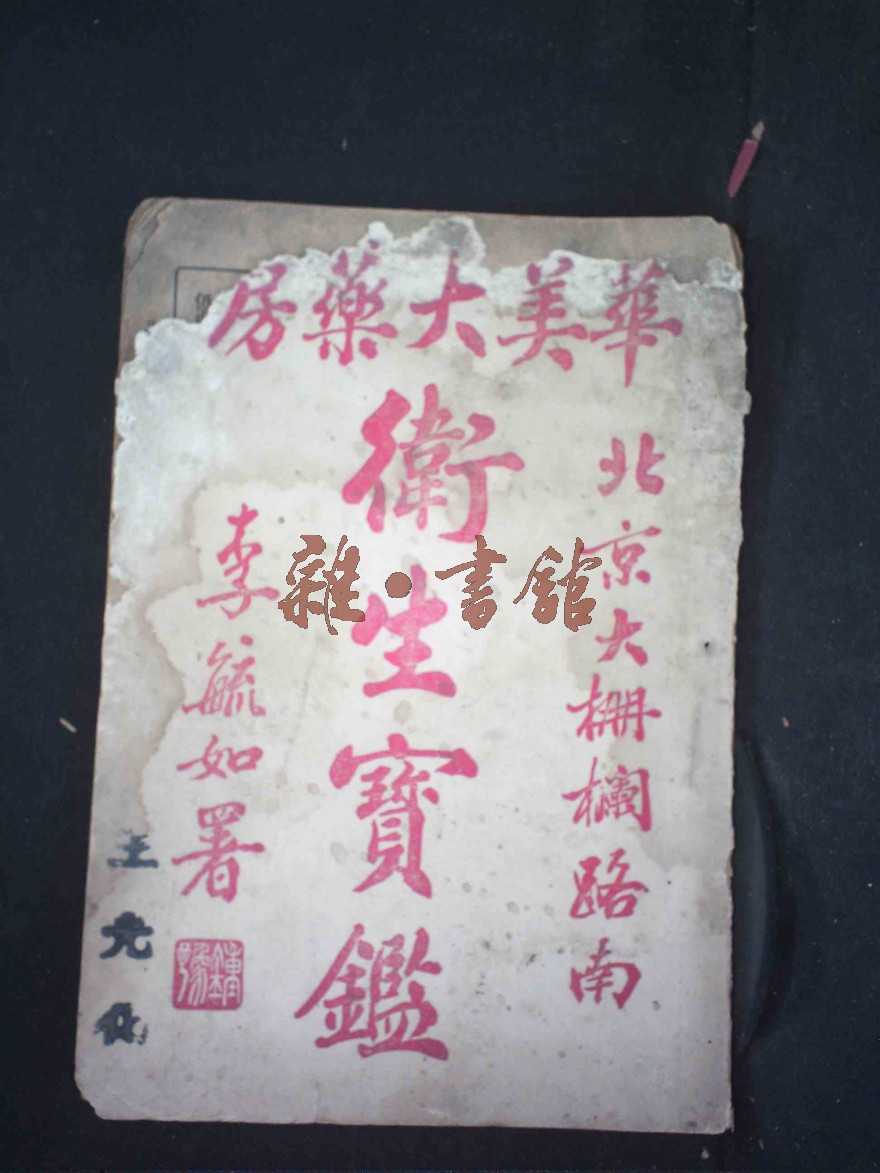 華美大藥房
北京大柵欄路南
衛生寶鑑
李毓如署
雜·書館